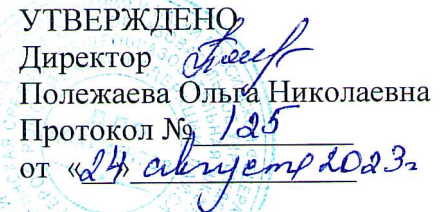 УТВЕРЖДЕНО
Директор
Полежаева Ольга Николаевна
Протокол № 125
от «24» августа 2023г